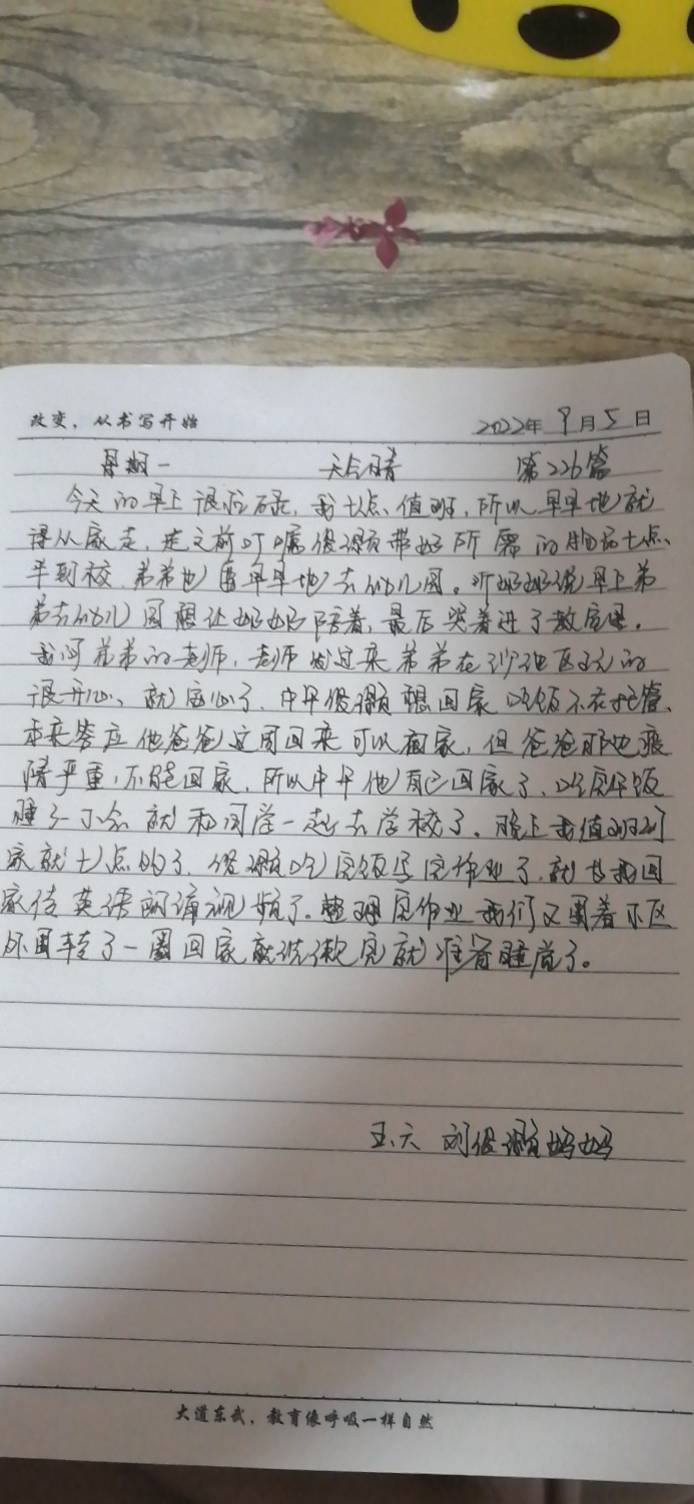 改变,从书写开始
2022年9月5日
星期一 天气晴 第226篇
今天的早上很忙碌,我七点值班,所以早早地就
得从家走,走之前叮嘱俊灏带好所需的物品七点
半到校,弟弟也早早地去幼儿园。听奶奶说早上弟
弟去幼儿园想让奶奶陪着,最后哭着进了教室里。
我问弟弟的老师,老师发过来弟弟在沙池区玩的
很开心,就安心了,中午俊灏想回家吃饭不在托管、
本来答应他爸爸这周回来可以在家,但爸爸那边疫
情严重,不能回家,所以中午他自己回家了,吃完午饭
睡了一小会就和同学一起去学校了。晚上我值班到
家就七点的了,俊灏吃完饭写完作业了,就等我回
家传英语阅读视频了。整理完作业我们又围着小区
外围转了一圈回家就洗漱完就准备睡觉了。
五、六 刘俊灏妈妈
大道东武,教育像呼吸一样自然